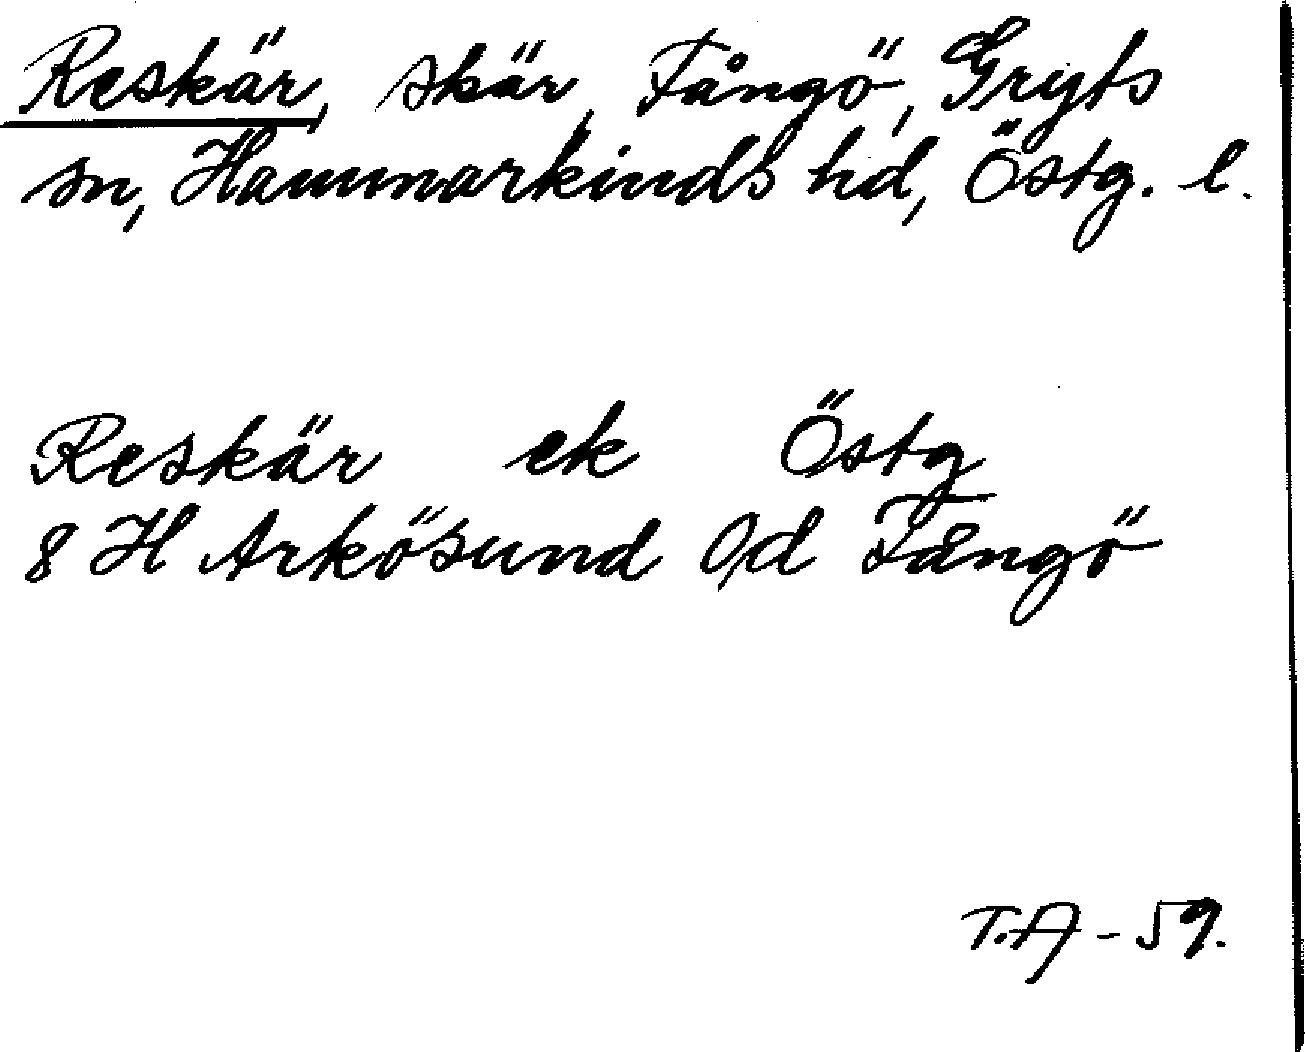 Reskär, skär, Fångö, Gryts
sn, Hammarkinds hd, Östg. l.
Reskär ek Östg
8 H Arkösund Od Fångö
T.A - 59.